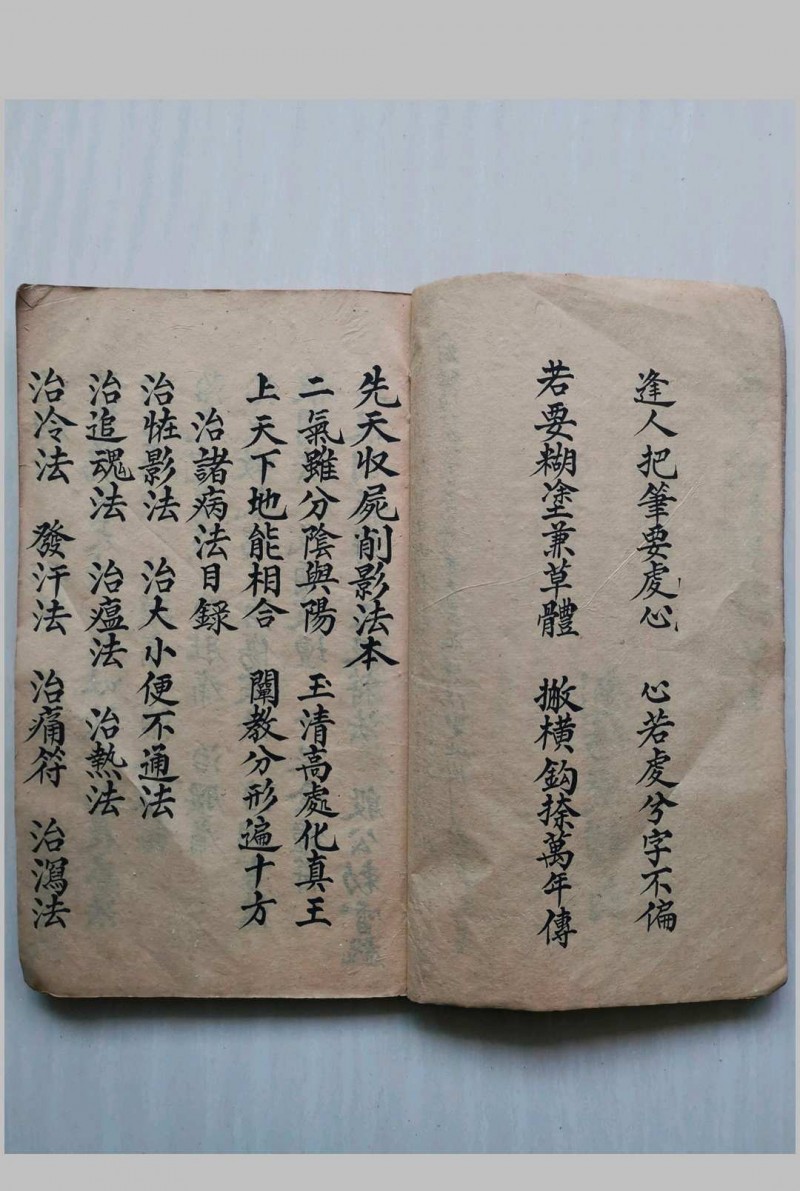 逢人把筆要虔心　心若虔兮字不偏
若要糊塗兼草體　撇橫鈎捺萬年傳
先天收屍削影法本
二氣雖分陰與陽　玉清高處化真王
上天下地能相合　闡教分形遍十方
治諸病法目録
治恠影法　治大小便不通法
治追魂法　治瘟法　治熱法
治冷法　發汗法　治痛符　治瀉法